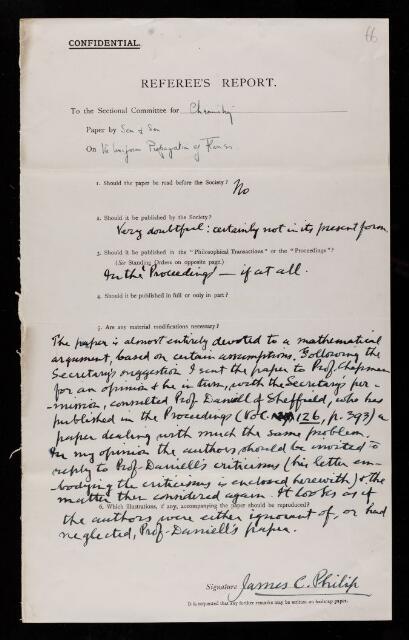 66
CONFIDENTIAL.
REFEREE'S REPORT.
To the Sectional Committee for Chemistry
Paper by Sen & Sen
On the Uniform Propagation of Flames
1. Should the paper be read before the Society? No
2. Should it be published by the Society?
Very doubtful: certainly not in its present form
3. Should it be published in the "Philosophical Transactions" or the "Proceedings"?
(See Standing Orders on opposite page.)
In the 'Proceedings' — if at all.
4. Should it be published in full or only in part?
5. Are any material modifications necessary?
The paper is almost entirely devoted to a mathematical
argument, based on certain assumptions. Following the
Secretary's suggestion I sent the paper to Prof. Chapman
for an opinion & he in turn, with the Secretary's per-
-mission, consulted Prof. Daniell of Sheffield, who has
published in the Proceedings (Vol. 126, p. 393) a
paper dealing with much the same problem.
In my opinion the authors should be invited to
reply to Prof. Daniell's criticisms (his letter em-
-bodying the criticisms is enclosed herewith) & the
matter then considered again. It looks as if
6. Which illustrations, if any, accompanying the paper should be reproduced?
the authors were either ignorant of, or had
neglected, Prof. Daniell's paper.
Signature James C. Philip
It is requested that any further remarks may be written on foolscap paper.